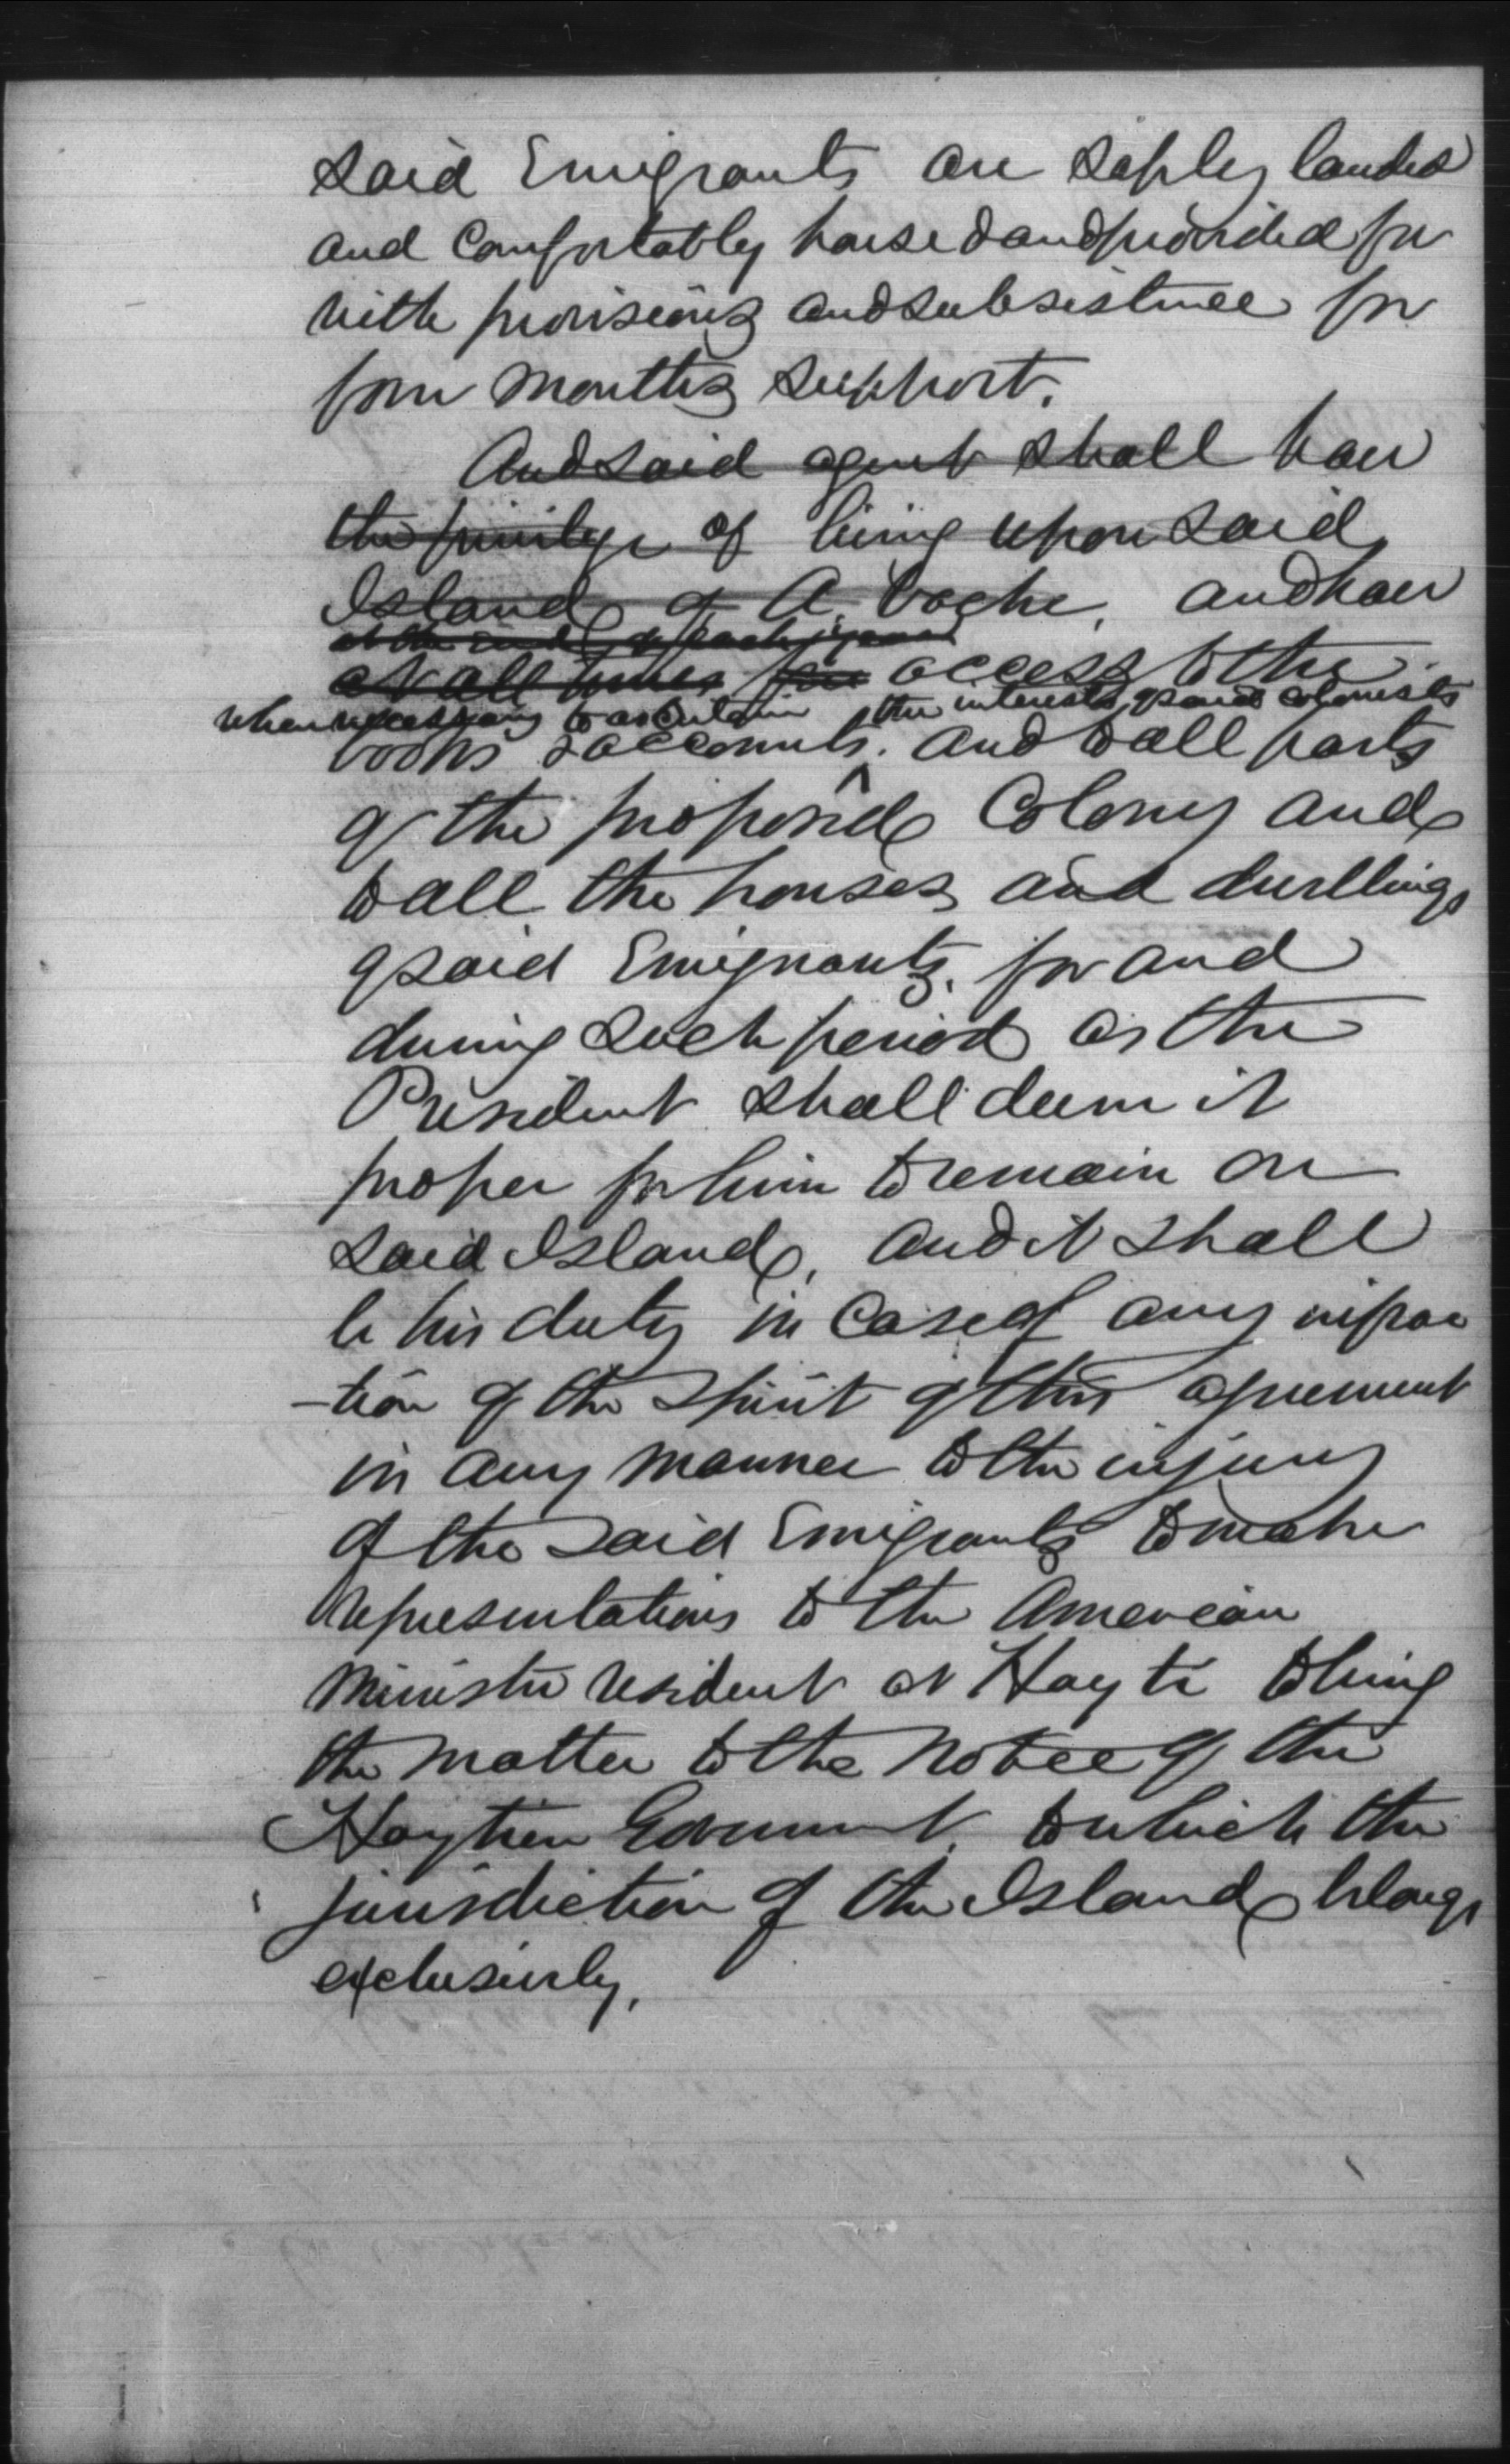 said Emigrants are safely landed
and Comfortably housed and provided for
with provisions and subsistence for
four months support.
And said agent shall have
the privilege of living upon said
Island of A. Vache, and have
at the end of each year
at all times free access to the
when necessary to ascertain the interests of said colonists
books & accounts. and to all parts
of the proposed Colony and
to all the houses and dwellings
of said Emigrants, for and
during such period as the
President shall deem it
proper for him to remain on
said Island, and it shall
be his duty in Case of any infrac
-tion of the Spirit of this agreement
in any manner to the injury
of the said Emigrants to make
representations to the American
Minister resident at Hayti to bring
the matter to the notice of the
Haytien Government, to which the
jurisdiction of the Island belongs
exclusively,